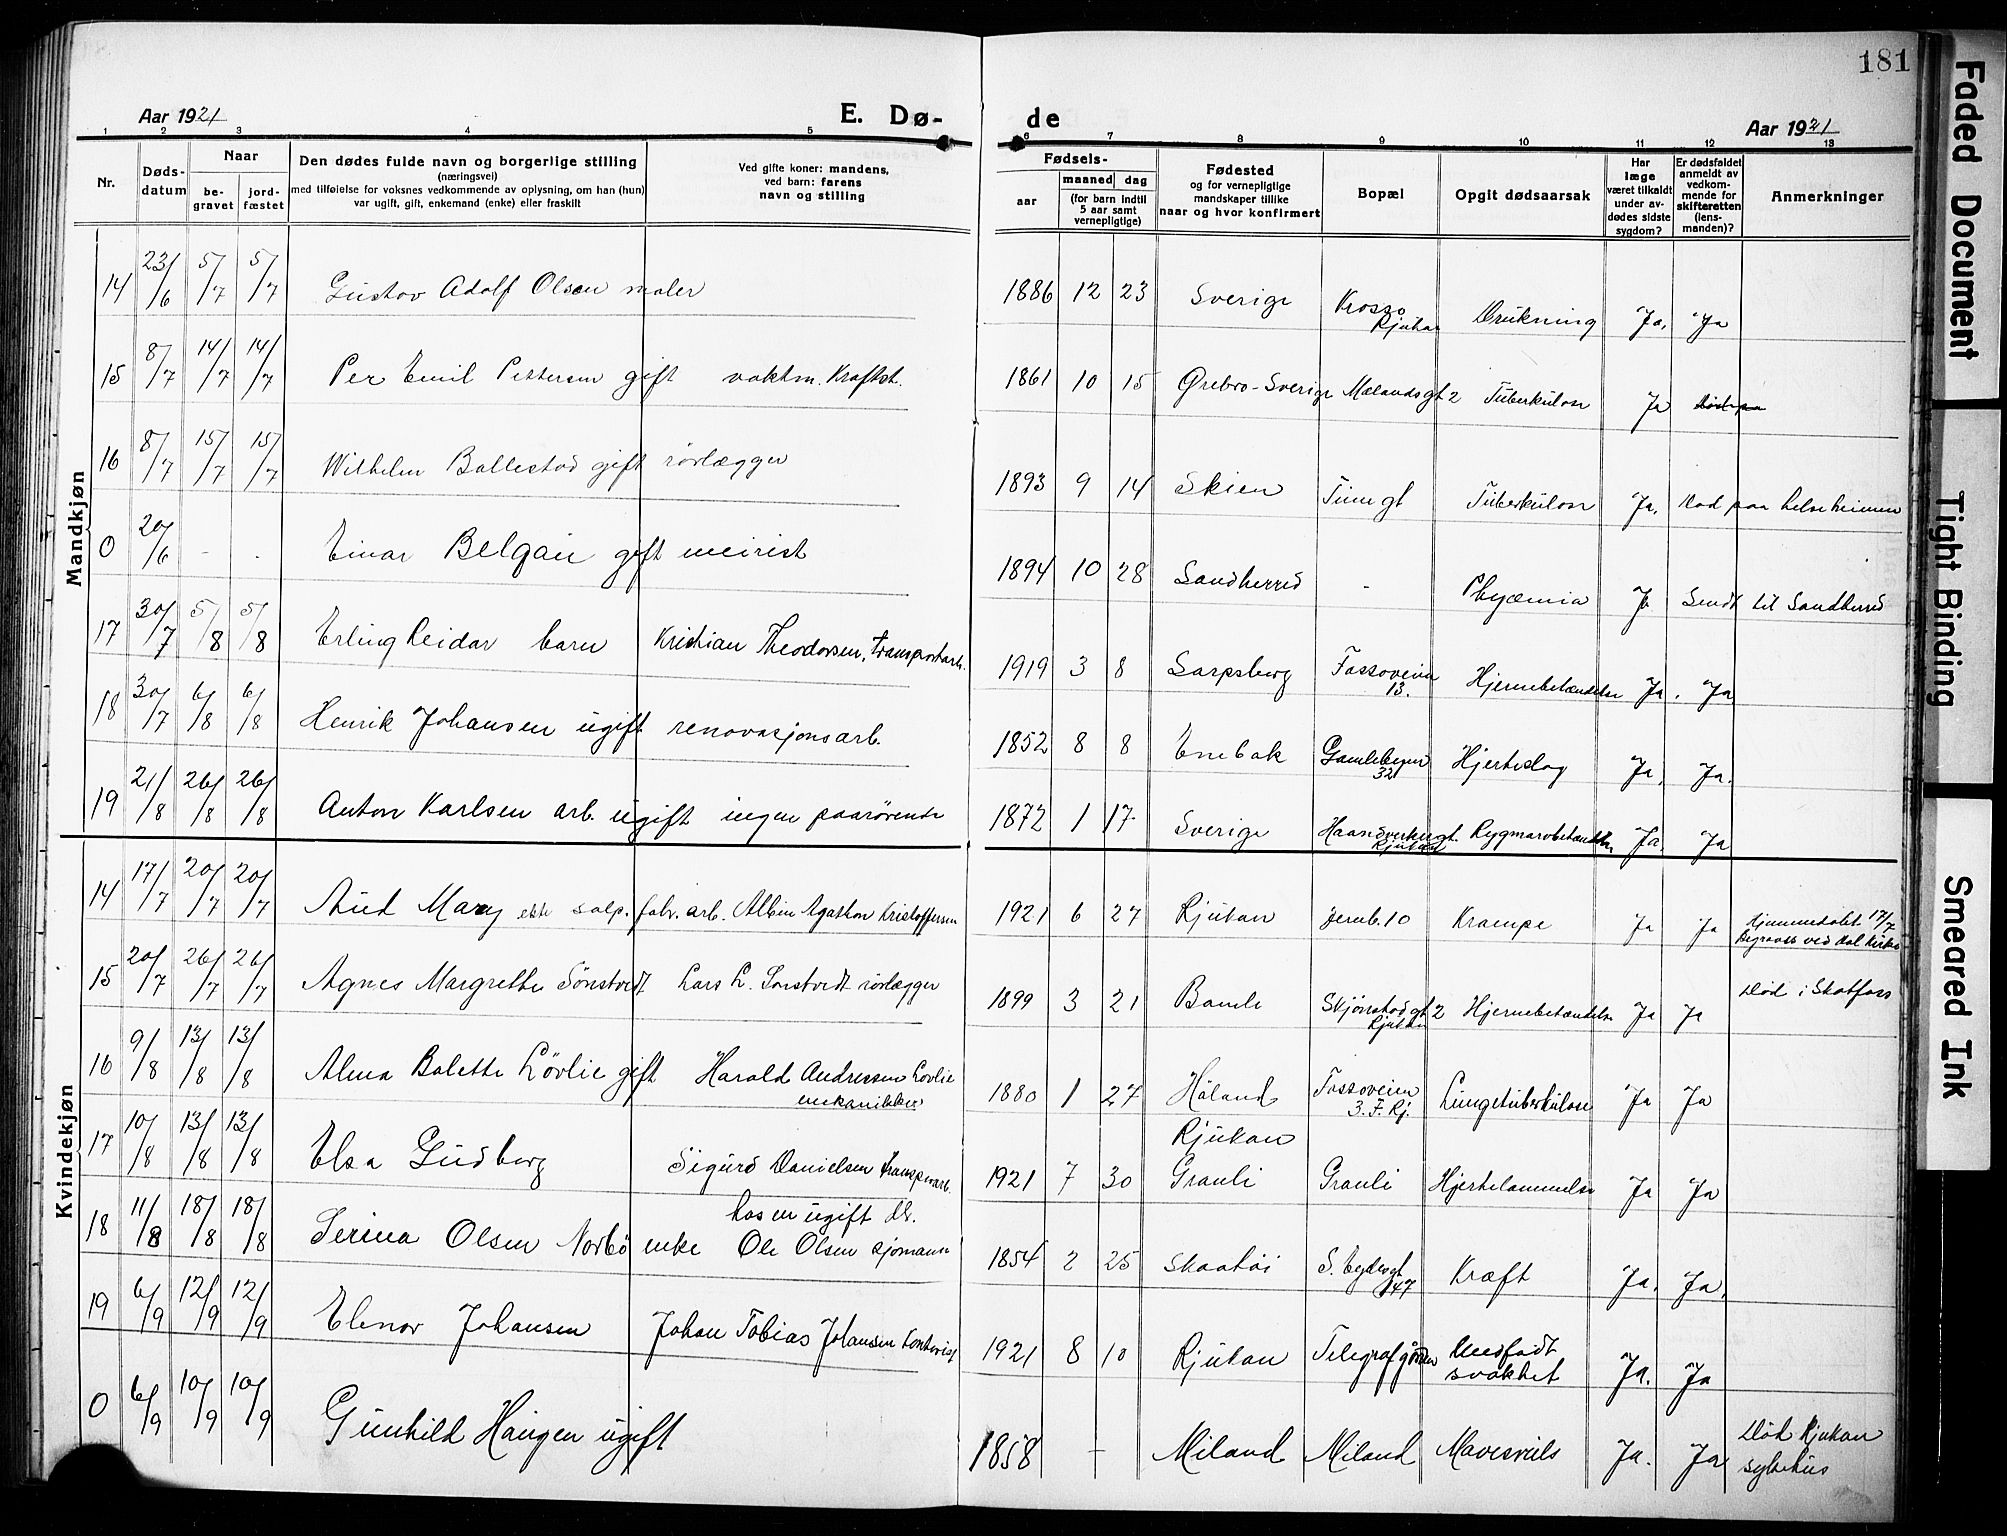 181
Aar 1921 E. Dø- de Aar 1921
1 2 3 4 5 6 7 8 9 10 11 12 13
Nr. Døds-datum Naar be-gravet jord-fæstet Den dødes fulde navn og borgerlige stilling (næringsvei) med tilføielse for voksnes vedkommende av oplysning, om han (hun) var ugift, gift, enkemand (enke) eller fraskilt Ved gifte koner: mandens, ved barn: farens navn og stilling Fødsels- aar maaned dag (for barn indtil 5 aar samt vernepligtige) Fødested og for vernepligtige mandskaper tillike naar og hvor konfirmert Bopæl Opgit dødsaarsak Har læge været tilkaldt under av-dødes sidste sygdom? Er dødsfaldet anmeldt av vedkom-mende for skifteretten (lens-manden)? Anmerkninger
Mandkjøn
14 23/6 5/7 5/7 Gustav Adolf Olsen maler 1886 12 23 Sverige Krosso Rjukan Drukning Ja. Ja
15 8/7 14/7 14/7 Per Emil Pettersen gift vaktm. Kraftst. 1861 10 15 Ørebro-Sverige Mælandsgt 2 Tuberkulose Ja
16 8/7 15/7 15/7 Wilhelm Ballestad gift rørlægger 1893 9 14 Skien Tinngt Tuberkulose Ja. Død paa helseheimen
0 20/6 - - Einar Belgau gift meirist 1894 10 28 Sandherred - Pyæmia Ja Sendt til Sandherred
17 30/7 5/8 5/8 Erling Reidar barn Kristian Theodorsen, transportarb. 1919 3 8 Sarpsborg Fossoveien 13. Hjernebetændelse Ja. Ja
18 30/7 6/8 6/8 Henrik Johansen ugift renovasjonsarb. 1852 8 8 Enebak Gamlebyen 32 Hjerteslag Ja. Ja.
19 21/8 26/8 26/8 Anton Karlsen arb. ugift ingen paarørende 1872 1 17 Sverige Haandverkergt. Rjukan Rygmarvbetændelse Ja. Ja
Kvindekjøn
14 17/7 20/7 20/7 Aud Mary ekte salp. fabr. arb. Albin Agathon Kristoffersen 1921 6 27 Rjukan Jernb. 10 Krampe Ja Ja Hjemmedøbt 17/7 Begraves ved Dal kirke
15 20/7 26/7 26/7 Agnes Margrethe Sønstvedt Lars L. Sønstvedt rørlægger 1899 3 21 Bamle Skjønstadgt 2 Rjukan Hjernebetændelse Ja Ja Død i Skotfoss
16 9/8 13/8 13/8 Alma Balette Løvlie gift Harald Andressen Løvlie mekaniker 1880 1 27 Høland Fossoveien 3. F. Rj. Lungetuberkulose Ja Ja
17 10/8 13/8 13/8 Elsa Gudborg Sigurd Danielsen transportarb. 1921 7 30 Rjukan Grauli Grauli Hjertelammelse Ja Ja
18 11/8 18/8 18/8 Serina Olsen Norbø enke Ole Olsen sjømann hos en ugift dt. 1854 2 25 Skaatøi S. bydesgt 47 Kræft Ja. Ja.
19 6/9 12/9 12/9 Elenor Johansen Johan Tobias Johansen kontorist 1921 8 10 Rjukan Telegrafgården Medfødt svakhet Ja. Ja
0 6/9 10/9 10/9 Gunhild Haugen ugift 1858 - Miland Miland Mavesvuls Ja. Ja Død Rjukan sykehus
Faded Document
Tight Binding
Smeared Ink